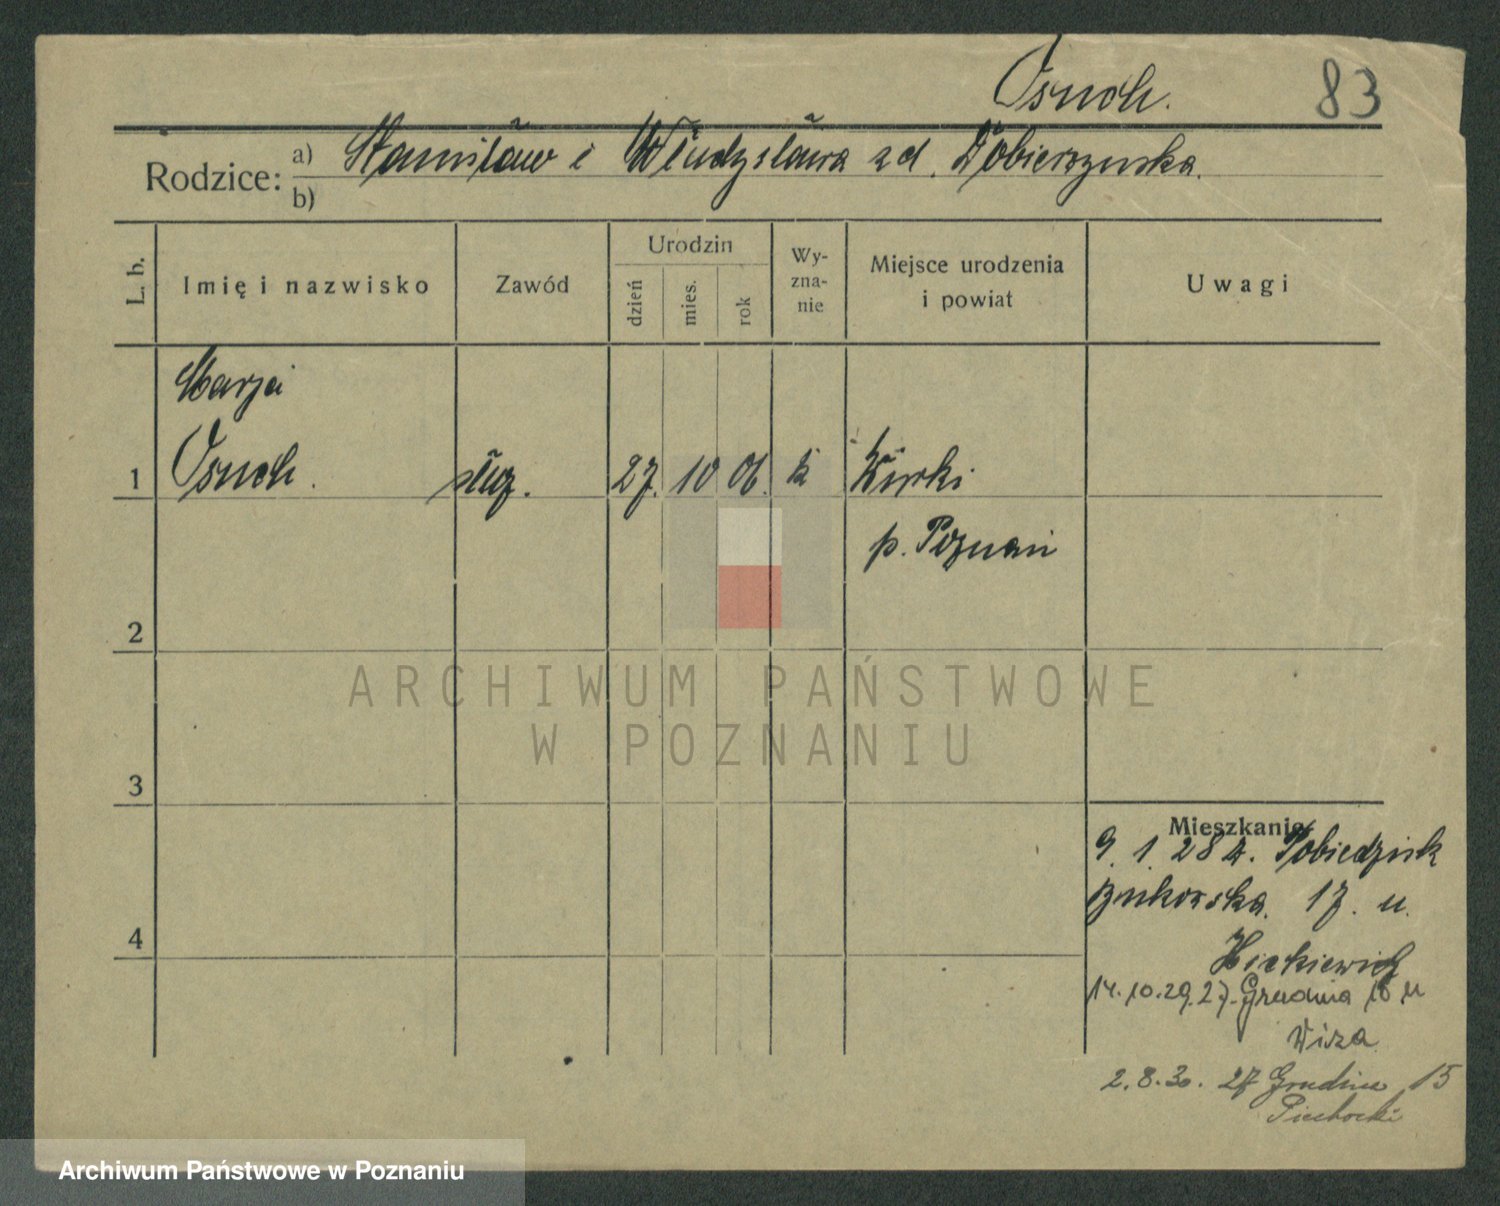 Osuch. 83
Rodzice: a) Stanisław i Władysława zd. Dobierzyńska.
b)
L. b. Imię i nazwisko Zawód Urodzin dzień mies. rok Wyznanie Miejsce urodzenia i powiat Uwagi
Marja
1 Osuch. służ. 27. 10 06. k Żirki
p. Poznań
2
ARCHIWUM PAŃSTWOWE
W POZNANIU
3
Mieszkanie
9. 1. 28 z. Pobiedzisk
Bukowska. 17. u.
14.10.29. 27. Grudnia 16 u
Wiza
2.8.30. 27 Grudnia 15
Piechocki
4
Archiwum Państwowe w Poznaniu